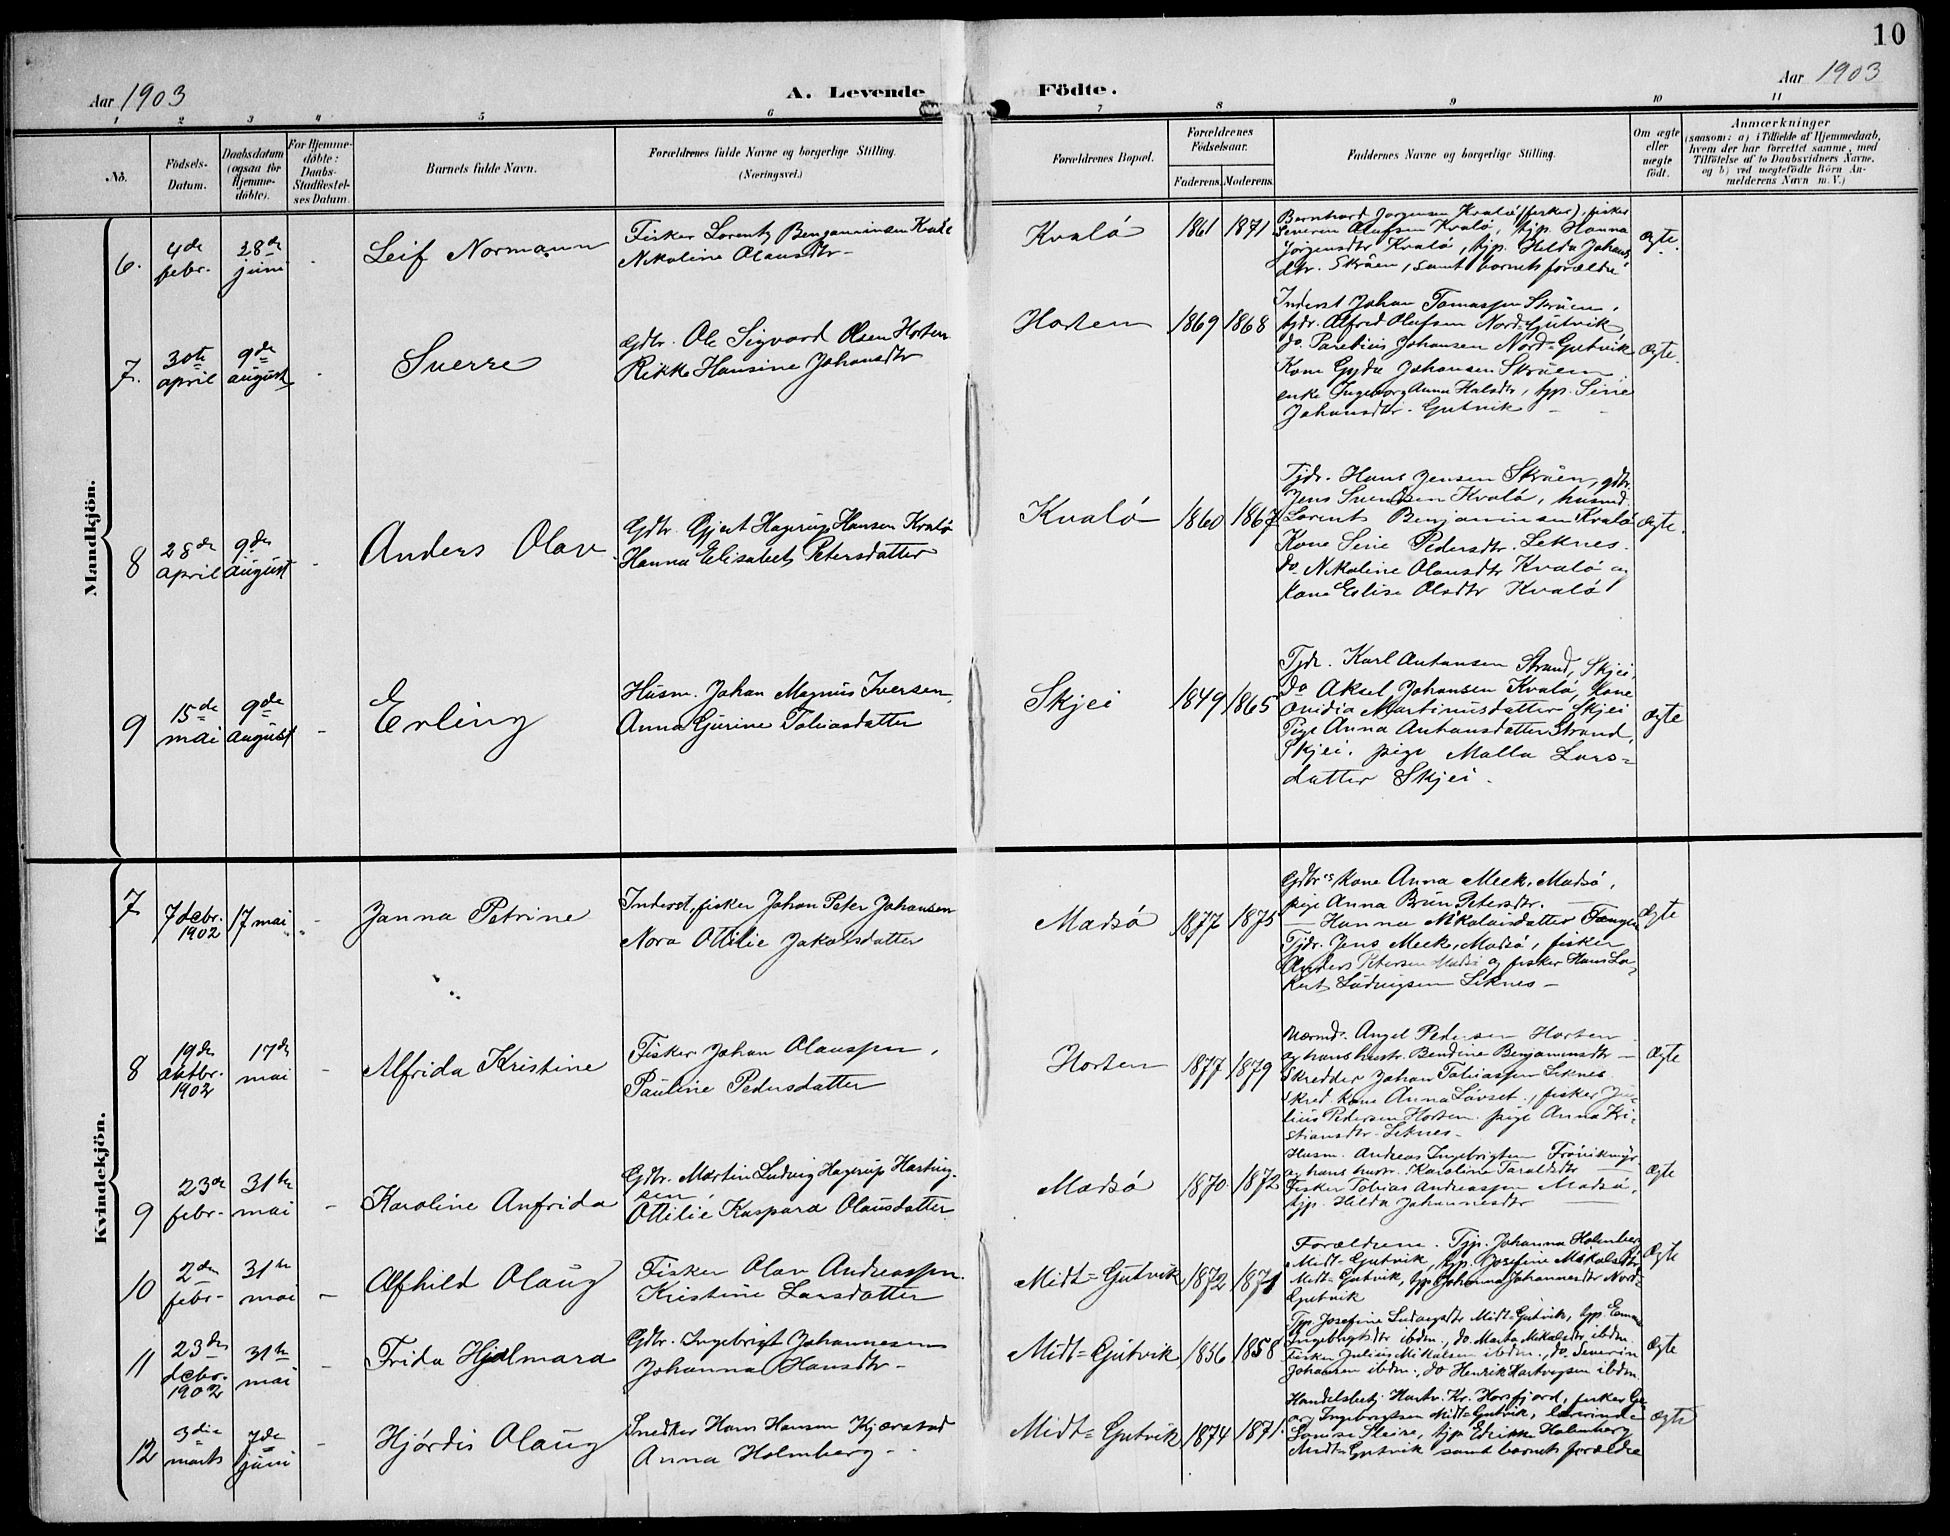 10
Aar 1903
A. Levende Födte.
Aar 1903
1 2 3 4 5 6 7 8 9 10 11
No.
Födsels-
Datum.
Daabsdatum
(ogsaa for
Hjemme-
döbte).
For Hjemme-
döbte:
Daabs-
Stadfestel-
ses Datum.
Barnets fulde Navn.
Forældrenes fulde Navne og borgerlige Stilling.
(Næringsvei.)
Forældrenes Bopæl.
Forældrenes
Födselsaar.
Faderens. Moderens.
Faddernes Navne og borgerlige Stilling.
Om ægte
eller
uægte
födt.
Anmærkninger
(saasom: a) i Tilfælde af Hjemmedaab,
hvem der har forrettet samme, med
Tilföielse af to Daabsvidners Navne,
og b) ved uægtefödte Börn An-
melderens Navn m. V.)
Mandkjön.
6. 4de febr. 28de juni
Leif Normann
Fisker Lorentz Benjaminsen Kvalø
Nikoline Olausdtr
Kvalö 1861 1871
Bernhard Jørgensen Kvalø (fisker), fisker
Severin Olufsen Kvalø, tjp. Hanna
Jörgensdtr Kvalö, tjp. Helda Johans
dtr. Skråen, samt barnets forældre
Ægte.
7. 30te april 9de august
Sverre
Gdbr. Ole Sigvard Olsen Horten
Rikke Hansine Johansdtr
Horten 1869 1868
Inderst Johan Tomassen Skråen,
tjdr. Alfred Olufsen Nord-Gutvik
do. Parelius Johansen Nord-Gutvik
Kone Gyda Johansen Skråen
enke Ingeborg Anna Halsdtr, tjp. Sine
Johansdtr. Gutvik
Ægte.
8 28de april 9de august
Anders Olav
Gdbr. Gjert Hagerup Hansen Kvalø
Hanna Elisabet Petersdatter
Kvalö 1860 1867
Tjdr. Hans Jensen Skråen, gdbr.
Jens Svendsen Kvalö, husmd.
Lorents Benjaminsen Kvalö
Kone Sine Pedersdtr. Leknes.
do. Nikoline Olausdtr Kvalö og
Kone Elise Olsdtr Kvalö
Ægte.
9 15de mai 9de august
Erling
Husm. Johan Magnus Iversen
Anna Gurine Tobiasdatter
Skjei 1849 1865
Tjdr. Karl Antonsen Strand, Skjei
do Aksel Johansen Kvalö, Kone
Ovidia Martinusdatter Skjei
Pige Anna Antonsdatter Strand,
Skjei, pige Malla Lars-
datter Skjei.
Ægte
Kvindekjön.
7 7 debr. 1902 17 mai
Janna Petrine
Inderst, fisker Johan Peter Johansen
Nora Ottilie Jakobsdatter
Madsö 1877 1875
Gdbrs kone Anna Meek, Madsö,
pige Anna Brun Petersdtr.
— Hanna Nikolaisdatter
Tjdr. Jens Meek, Madsö, fisker
Anders Petersen Madsö og fisker Hans La-
Ludvigsen Leknes —
Ægte
8 19de oktbr. 1902 17de mai
Alfrida Kristine
Fisker Johan Olaussen,
Pauline Pedersdatter
Horten 1877 1879
Angel Pedersen Horten
og hans hustr. Bendine Benjaminsdtr —
Skredder Johan Tobiassen Leknes
Skred. kone Anna Lövset, fisker Ju-
lius Pedersen Horten. pige Anna Kri-
stiansdtr. Leknes.
Ægte
9 23de febr. 31te mai
Karoline Anfrida
Gdbr. Martin Ludvig Hagerup Hartvig-
sen
Ottilie Kaspara Olausdatter
Madsö 1870 1872
Husm. Andreas Ingebrigtsen
og hans hustr. Karoline Taraldsdtr
Fisker Tobias Andreassen Madsö,
tjp. Hilda Johannesdtr
Ægte
10 2den febr. 31te mai
Alfhild Olaug
Fisker Olav Andreassen
Kristine Larsdatter
Midt-Gutvik 1872 1871
Forældrene. Tjp. Johanna Holmberg
Midt-Gutvik, tjp. Josefine Mikalsdtr
Midt-Gutvik, tjp. Johanna Johannesdtr Nord-
Gutvik
Ægte
11 23de debr. 1902 31te mai
Frida Hjalmara
Gdbr. Ingebrigt Johannesen
Johanna Hansdtr
Midt-Gutvik 1856 1858
Tjp. Josefine Ludvigsdtr Midt-Gutvik, tjp. Emma
Ingebrigtsdtr ibdm., do. Marta Mikalsdtr ibdm.
fisker Julius Mikalsen ibdm., do. Severin
Johansen ibdm., do Henrik Hartvigsen ibdm.
Ægte
12 3die marts 7de juni
Hjördis Olaug
Snedker Hans Hansen Kjærstad
Anna Holmberg
Midt-Gutvik 1874 1871.
Handelsbetj. Hartv. Kr. Horsfjord, fisker
Ingebrigtsen Midt-Gutvik, lærerinde
Louise Sleire, tjp. Edrikke Holmberg
Midt-Gutvik samt barnets forældre
Ægte